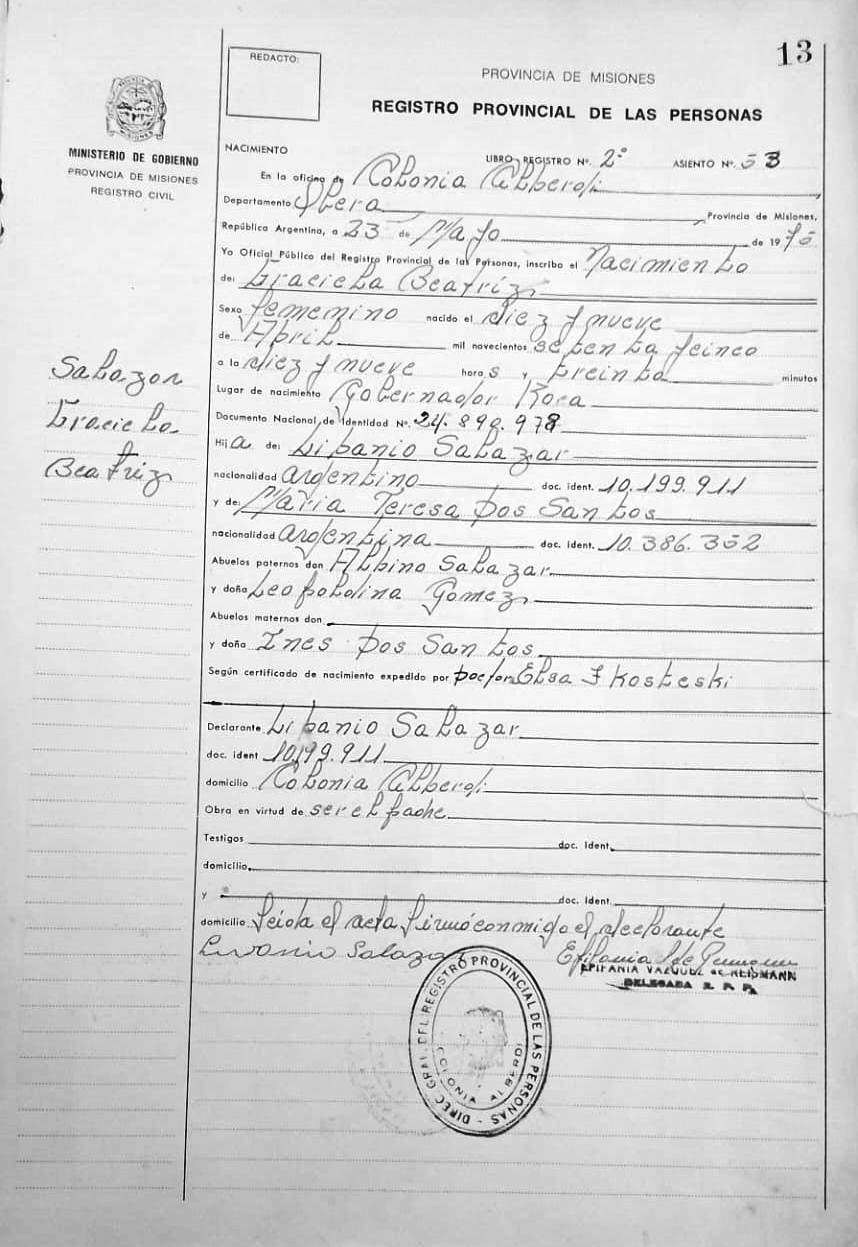 13
REDACTO:
PROVINCIA DE MISIONES
REGISTRO PROVINCIAL DE LAS PERSONAS
MINISTERIO DE GOBIERNO
PROVINCIA DE MISIONES
REGISTRO CIVIL
NACIMIENTO LIBRO REGISTRO Nº. 2º ASIENTO Nº. 53
En la oficina de Colonia Alberdi
Departamento Obera Provincia de Misiones,
República Argentina, a 23 de Mayo de 1975
Yo Oficial Público del Registro Provincial de las Personas, inscribo el Nacimiento
de: Graciela Beatríz
Sexo femenino nacido el diez y nueve
de Abril mil novecientos setenta y cinco
a la diez y nueve horas y treinta minutos
Lugar de nacimiento Gobernador Roca
Documento Nacional de Identidad Nº. 24.890.978
Hija de: Libanio Salazar
nacionalidad argentino doc. ident. 10.199.911
y de: Maria Teresa Dos Santos
nacionalidad argentina doc. ident. 10.386.352
Abuelos paternos don Albino Salazar
y doña Leopoldina Gomez
Abuelos maternos don
y doña Ines Dos Santos
Según certificado de nacimiento expedido por Doctor Elsa I Kosteski
Declarante Libanio Salazar
doc. ident 10199.911
domicilio Colonia Alberdi
Obra en virtud de ser el padre
Testigos doc. ident.
domicilio
y doc. ident.
domicilio Leida el acta firmó conmigo el declarante
Livanio Salazar Epifania
EPIFANIA VAZQUEZ de REISMANN
DELEGADA R. P. P.
Salazar
Graciela
Beatriz
DIREC. GRAL. DEL REGISTRO PROVINCIAL DE LAS PERSONAS
COLONIA ALBERDI